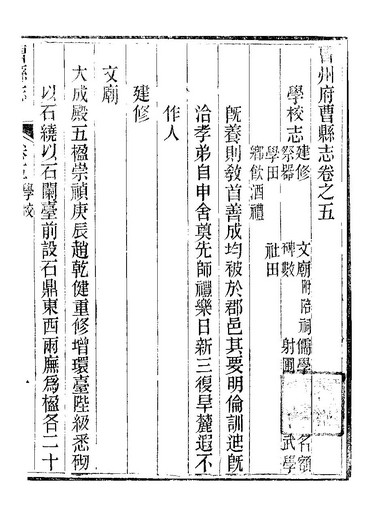 曹州府曹縣志卷之五
學校志
建修 文廟附陪祠 儒學 名額
祭器 碑數 射圃 武學
學田 社田
鄉飲酒禮
旣養則敎首善成均被於郡邑其要明倫訓迪旣
洽孝弟自申舍奠先師禮樂日新三復旱麓遐不
作人
建修
文廟
大成殿五楹崇禎庚辰趙乾健重修增環臺陛級悉砌
以石繞以石闌臺前設石鼎東西兩廡爲楹各二十
曹縣志
卷之五 學校